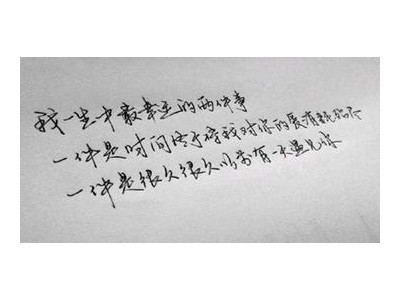 我一生中最幸运的两件事
一件是时间终于将我对你的爱消耗殆尽
一件是很久很久以前有一天遇见你